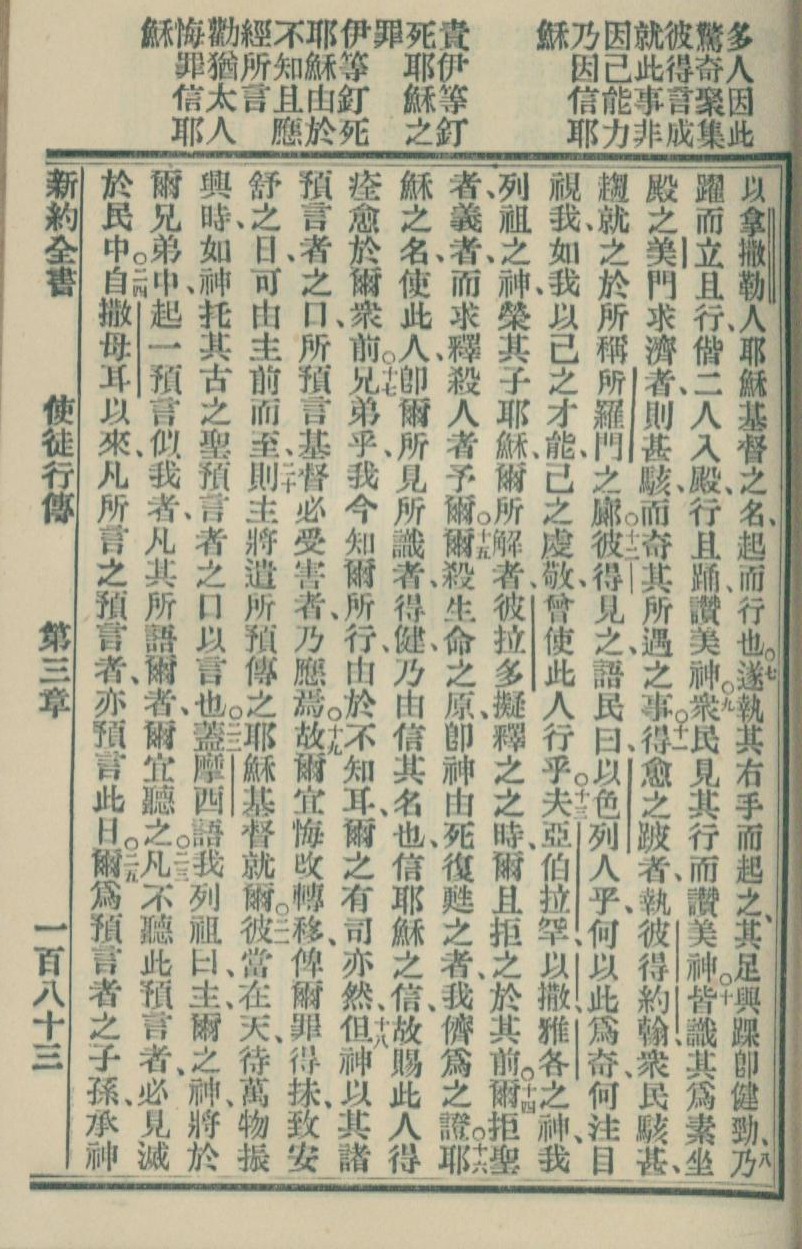 多人因此
驚奇聚集
彼得言成
就此事非
因己能力
乃因信耶
穌
責伊等釘
死耶穌之
罪
伊等釘死
耶穌由於
不知且應
經所言
勸猶太人
悔罪信耶
穌
以拿撒勒人耶穌基督之名、起而行也、○七遂執其右手而起之、其足與踝卽健勁、八乃
躍而立且行、偕二人入殿、行且踊、讚美神、○九衆民見其行而讚美神、○十皆識其爲素坐
殿之美門求濟者、則甚駭、而奇其所遇之事、○十一得愈之跛者、執彼得約翰、衆民駭甚、
趨就之於所稱所羅門之廊、○十二彼得見之、語民曰、以色列人乎、何以此爲奇、何注目
視我、如我以己之才能、己之虔敬、曾使此人行乎、○十三夫亞伯拉罕、以撒、雅各之神、我
列祖之神、榮其子耶穌、爾所解者、彼拉多擬釋之之時、爾且拒之於其前、○十四爾拒聖
者、義者、而求釋殺人者予爾、○十五爾殺生命之原、卽神由死復甦之者、我儕爲之證、○十六耶
穌之名、使此人、卽爾所見所識者、得健、乃由信其名也、信耶穌之信、故賜此人得
痊愈於爾衆前、○十七兄弟乎、我今知爾所行、由於不知耳、爾之有司亦然、十八但神以其諸
預言者之口、所預言基督必受害者、乃應焉、○十九故爾宜悔改轉移、俾爾罪得抹、致安
舒之日、可由主前而至、二十則主將遣所預傳之耶穌基督就爾、○二一彼當在天、待萬物振
興時、如神托其古之聖預言者之口以言也、○二二蓋摩西語我列祖曰、主、爾之神、將於
爾兄弟中、起一預言似我者、凡其所語爾者、爾宜聽之、○二三凡不聽此預言者、必見滅
於民中、○二四自撒母耳以來、凡所言之預言者、亦預言此日、○二五爾爲預言者之子孫、承神
新約全書　使徒行傳　第三章　一百八十三